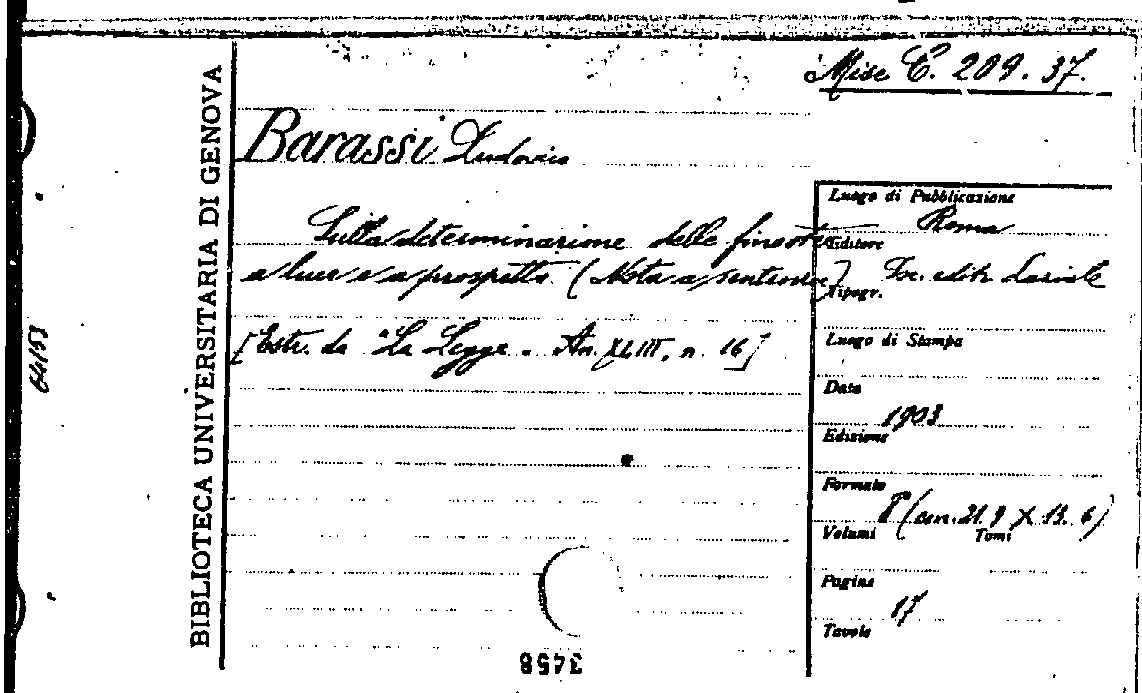 Misc C. 209. 37.
BIBLIOTECA UNIVERSITARIA DI GENOVA
Barassi Ludovico
Sulla determinazione delle finestre
a luce e a prospetto. (Nota a sentenza)
[Estr. da "La Legge" - An. XLIII, n. 16]
Luogo di Pubblicazione
Roma
Editore
Soc. editr. Laziale
Tipogr.
Luogo di Stampa
Data
1903
Edizione
Formato
8° (cm. 21.9 X 13.6)
Volumi Tomi
Pagine
17
Tavole
64153
3458